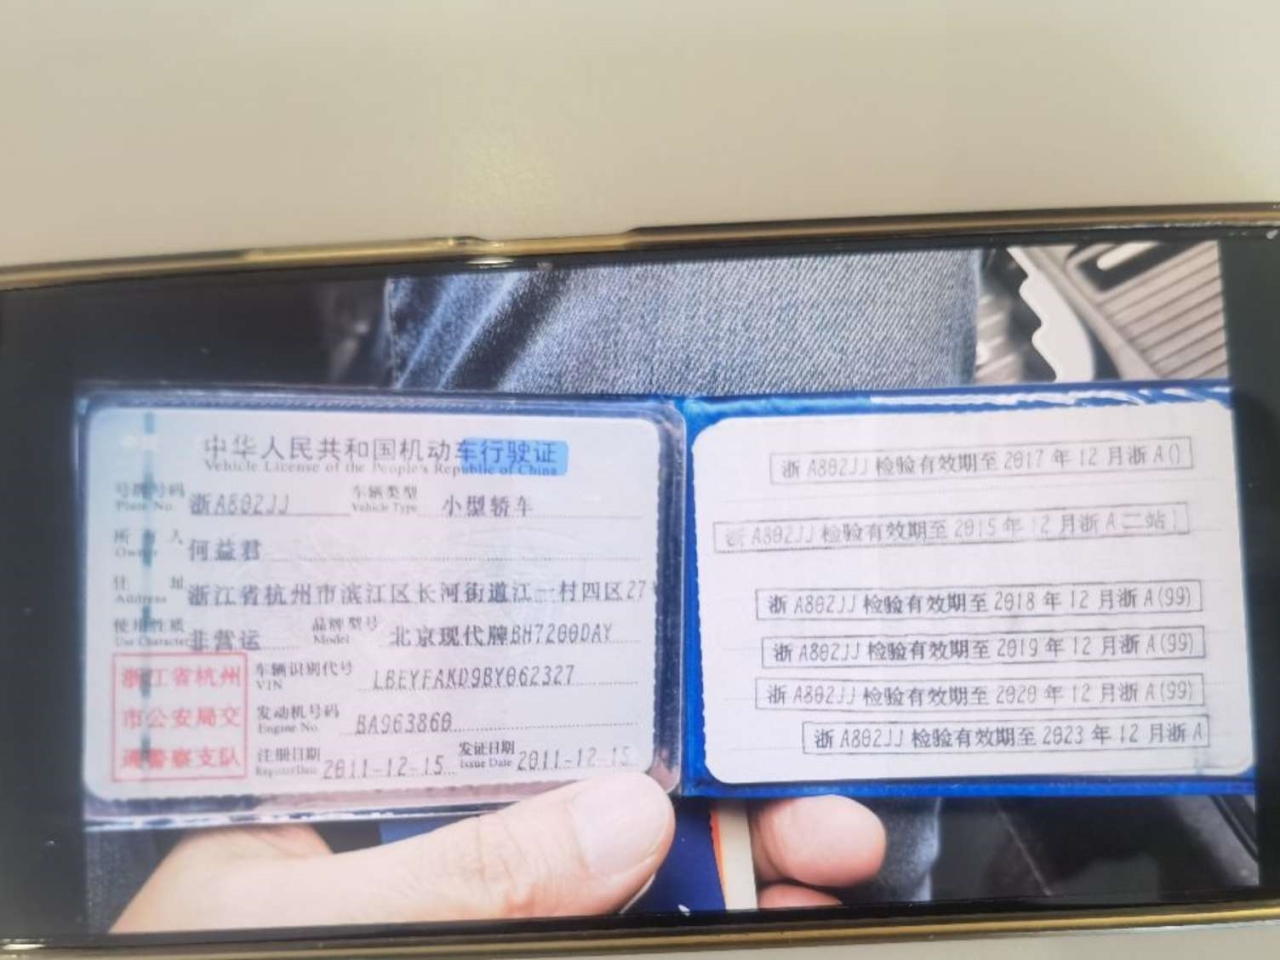 中华人民共和国机动车行驶证
Vehicle License of the People's Republic of China
号牌号码 浙A802JJ 车辆类型 小型轿车
Plate No. Vehicle Type
所有人 何益君
Owner
住址 浙江省杭州市滨江区长河街道江一村四区27
Address
使用性质 非营运 品牌型号 北京现代牌BH7200DAY
Use Character Model
浙江省杭州
市公安局交
通警察支队
车辆识别代号 LBEYFAKD9BY062327
VIN
发动机号码 BA963860
Engine No.
注册日期 2011-12-15 发证日期 2011-12-15
Register Date Issue Date
浙A802JJ检验有效期至2017年12月浙A()
浙A802JJ检验有效期至2015年12月浙A二站
浙A802JJ检验有效期至2018年12月浙A(99)
浙A802JJ检验有效期至2019年12月浙A(99)
浙A802JJ检验有效期至2020年12月浙A(99)
浙A802JJ检验有效期至2023年12月浙A